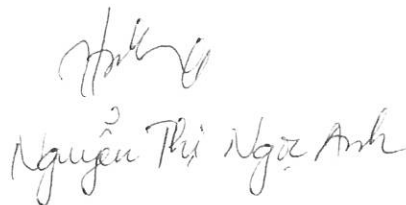 Nguyễn Thị Ngọc Anh